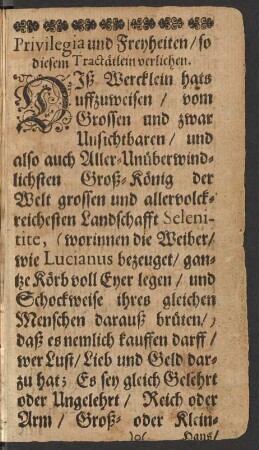 Privilegia und Freyheiten / so
diesem Tractätlein verlichen.
DIß Wercklein hats
uffzuweisen / vom
Grossen und zwar
Unsichtbaren / und
also auch Aller-Unüberwind-
lichsten Groß-König der
Welt grossen und allervolck-
reichesten Landschafft Seleni-
tite, (worinnen die Weiber /
wie Lucianus bezeuget / gan-
tze Körb voll Eyer legen / und
Schockweise ihres gleichen
Menschen darauß brüten /)
daß es nemlich kauffen darff /
wer Lust / Lieb und Geld dar-
zu hat; Es sey gleich Gelehrt
oder Ungelehrt / Reich oder
Arm / Groß- oder Klein-
)o( Hans /